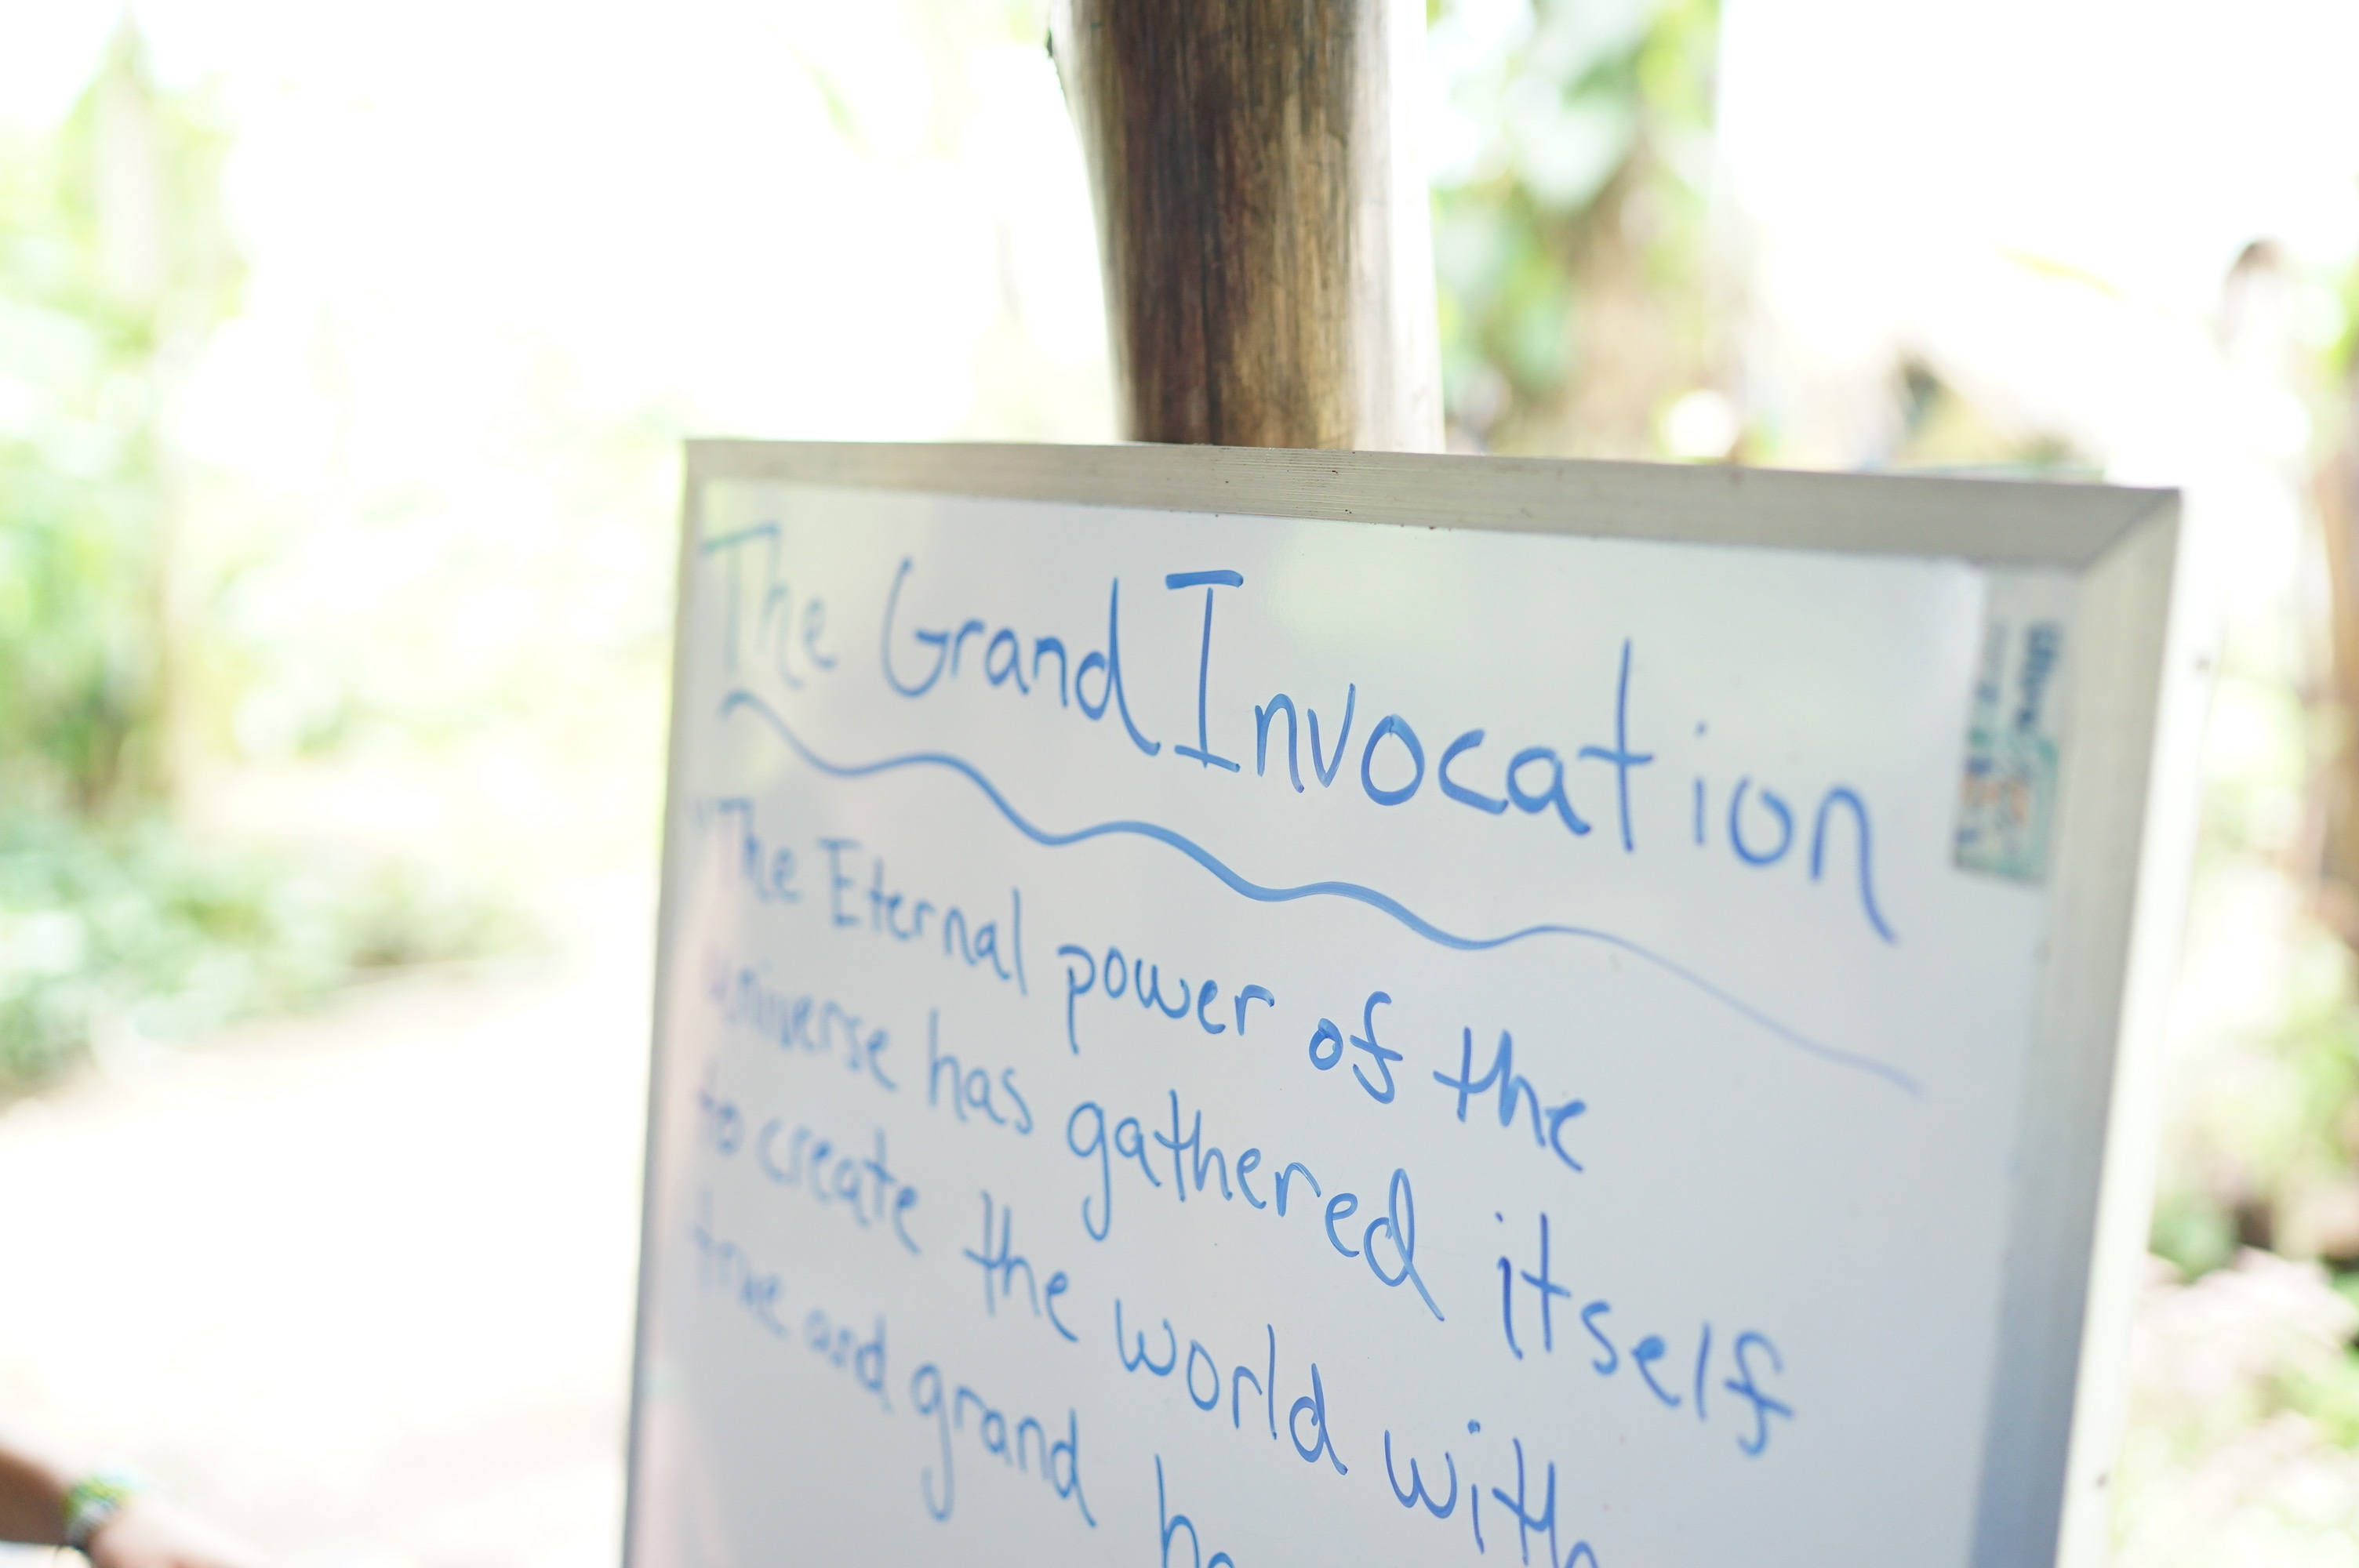 The Grand Invocation
"The Eternal power of the
universe has gathered itself
to create the world with
true and grand